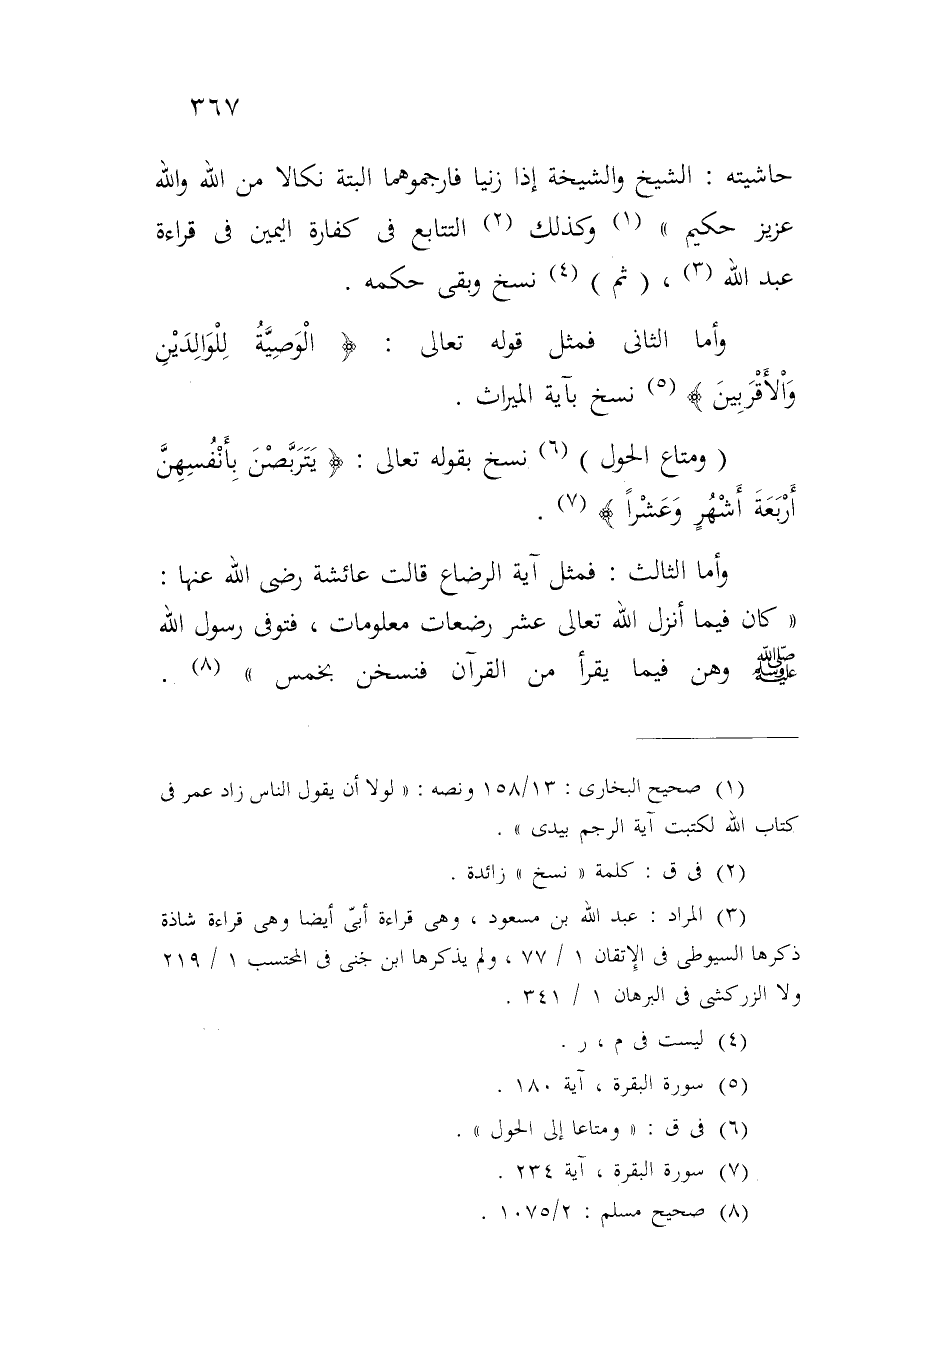 ٣٦٧
حاشيته : الشيخ والشيخة إذا زنيا فارجموهما البتة نكالا من الله والله
عزيز حكيم » (١) وكذلك (٢) التتابع فى كفارة اليمين فى قراءة
عبد الله (٣) ، ( ثم ) (٤) نسخ وبقى حكمه .
وأما الثانى فمثل قوله تعالى : ﴿ الْوَصِيَّةُ لِلْوَالِدَيْنِ
وَالْأَقْرَبِينَ ﴾ (٥) نسخ بآية الميراث .
( ومتاع الحول ) (٦) نسخ بقوله تعالى : ﴿ يَتَرَبَّصْنَ بِأَنْفُسِهِنَّ
أَرْبَعَةَ أَشْهُرٍ وَعَشْراً ﴾ (٧) .
وأما الثالث : فمثل آية الرضاع قالت عائشة رضى الله عنها :
« كان فيما أنزل الله تعالى عشر رضعات معلومات ، فتوفى رسول الله
ﷺ وهن فيما يقرأ من القرآن فنسخن بخمس » (٨) .
(١) صحيح البخارى : ١٥٨/١٣ ونصه : « لولا أن يقول الناس زاد عمر فى
كتاب الله لكتبت آية الرجم بيدى » .
(٢) فى ق : كلمة « نسخ » زائدة .
(٣) المراد : عبد الله بن مسعود ، وهى قراءة أبىّ أيضا وهى قراءة شاذة
ذكرها السيوطى فى الإتقان ١ / ٧٧ ، ولم يذكرها ابن جنى فى المحتسب ١ / ٢١٩
ولا الزركشى فى البرهان ١ / ٣٤١ .
(٤) ليست فى م ، ر .
(٥) سورة البقرة ، آية ١٨٠ .
(٦) فى ق : « ومتاعا إلى الحول » .
(٧) سورة البقرة ، آية ٢٣٤ .
(٨) صحيح مسلم : ١٠٧٥/٢ .